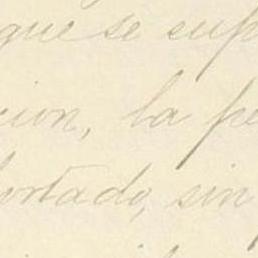 que se sup
cion, la pe
ortado, sin